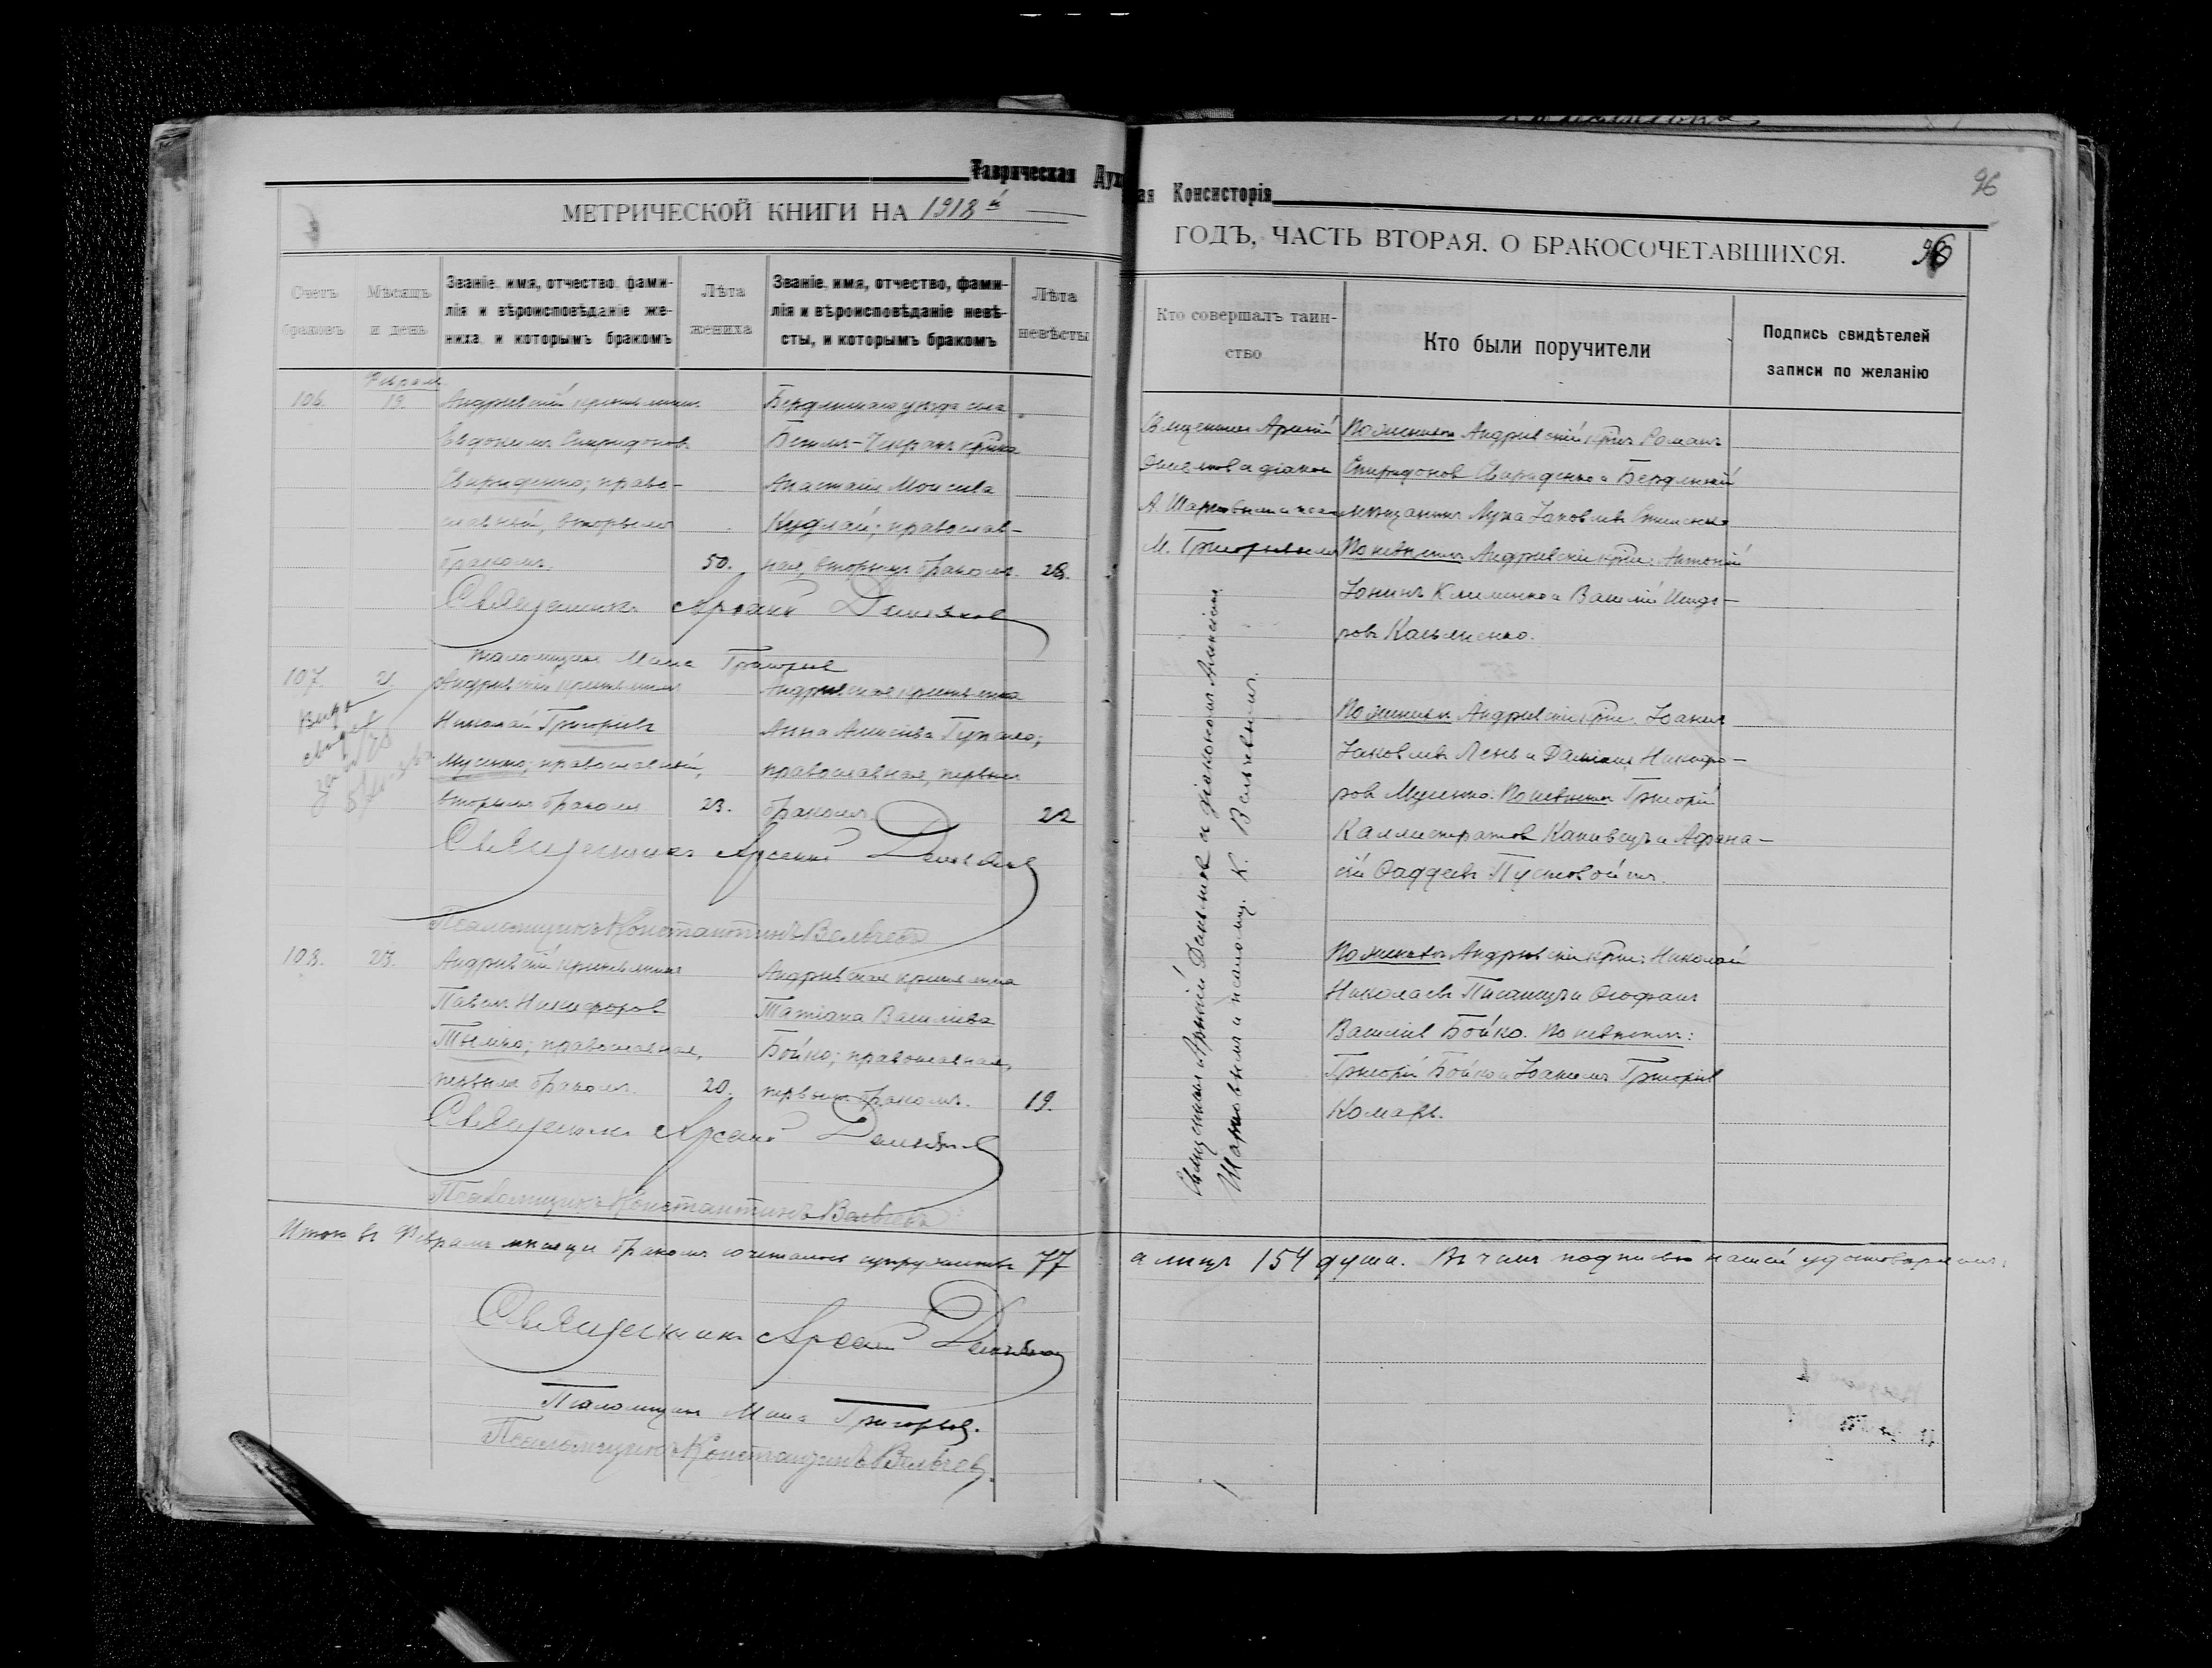 Таврическая Дух
ая Консисторія
96
МЕТРИЧЕСКОЙ КНИГИ НА 1918й
ГОДЪ, ЧАСТЬ ВТОРАЯ. О БРАКОСОЧЕТАВШИХСЯ.
96
Счетъ браковъ
Мѣсяцъ и день
Званіе, имя, отчество, фами-
лія и вѣроисповѣданіе же-
ниха, и которымъ бракомъ
Лѣта
жениха
Званіе, имя, отчество, фами-
лія и вѣроисповѣданіе невѣ-
сты, и которымъ бракомъ
Лѣта
невѣсты
Кто совершалъ таин-
ство
Кто были поручители
Подпись свидѣтелей
записи по желанію
106.
19.
Андреевскій крестьянинъ
Евдокимъ Спиридоновъ
Свириденко; право-
славный, вторымъ
бракомъ.
50.
Бердянскаго уѣзда села
Анастасія Моисеева
Кудлай; православ-
ная, вторымъ бракомъ.
28.
Священникъ Арсеній
А. Шарковымъ и
М. Григорьевымъ
По женихѣ Андреевскій крест. Романъ
Спиридоновъ Свириденко и Бердянскій
мѣщанинъ Лука Іаковлевъ
По невѣстѣ Андреевскіе крест. Антоній
Іонинъ Клименко и Василій Исидо-
ровъ
Священникъ Арсеній
Псаломщикъ Григорьев
107.
21
Андреевскій крестьянинъ
Николай Григорьевъ
Мусенко; православный,
вторымъ бракомъ
23.
Андреевская крестьянка
Анна Алексѣева
православная, первымъ
бракомъ.
22
По женихѣ Андреевскіе крест. Іоаннъ
Іаковлевъ Лень и Даміанъ Никифо-
ровъ Мусенко. По невѣстѣ Григорій
Каллистратовъ Каневецъ и Афана-
сій Фаддеевъ Пустовойтъ.
Священникъ Арсеній
Псаломщикъ Константинъ Вельчевъ
108.
23.
Андреевскій крестьянинъ
Павелъ Никифоровъ
Тымко; православная,
первымъ бракомъ.
20.
Андреевская крестьянка
Татіана Василіева
Бойко; православная,
первымъ бракомъ.
19.
Священникъ Арсеній и діакономъ Алексіемъ
Шарковымъ и псаломщ. К. Вельчевымъ.
По женихѣ Андреевскіе крест. Николай
Николаевъ Писанецъ и Ѳеофанъ
Василіев Бойко. По невѣстѣ:
Григорій Бойко и Іоакимъ Григоріев
Комаръ.
Священникъ Арсеній
Псаломщикъ Константинъ Вельчевъ
Итого въ Февралѣ мѣсяцѣ бракомъ сочеталось супружествъ 77
а лицъ 154 душъ. Въ чемъ подписью нашей удостовѣряемъ.
Священникъ Арсеній
Псаломщикъ Григорьев.
Псаломщикъ Константинъ Вельчевъ.